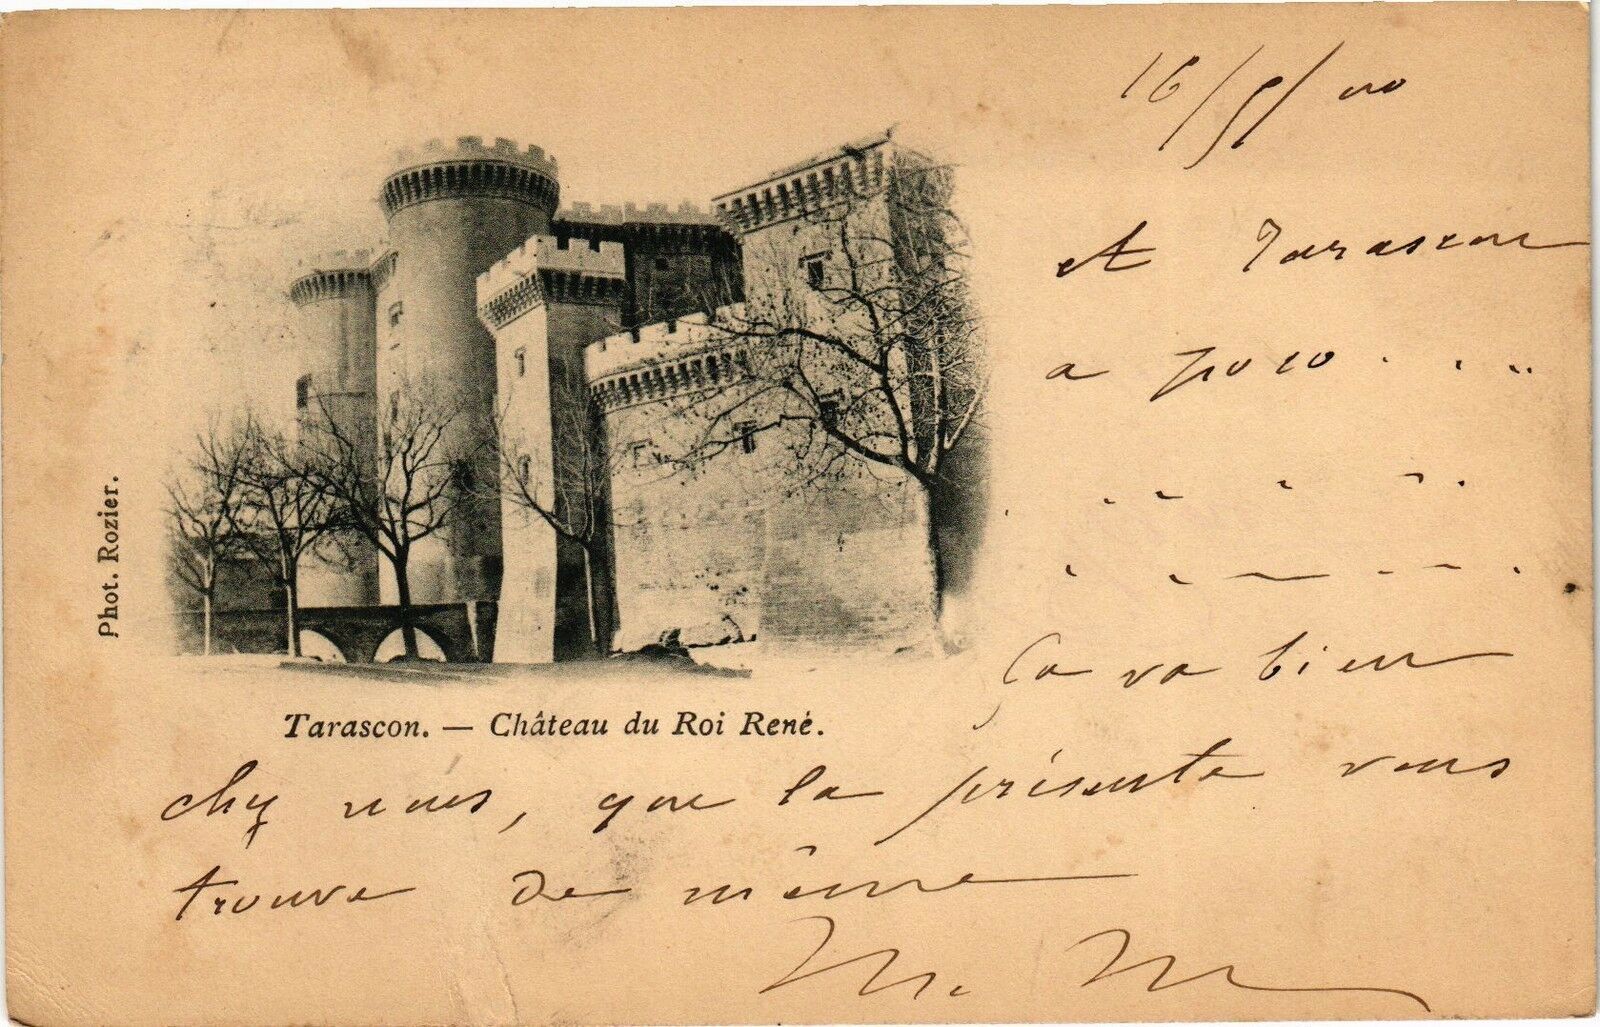 16/5/00
et Tarascon
a
Phot. Rozier.
Tarascon. — Château du Roi René.
Ça va bien
chez nous, que la présente vous
trouve de même
M. M